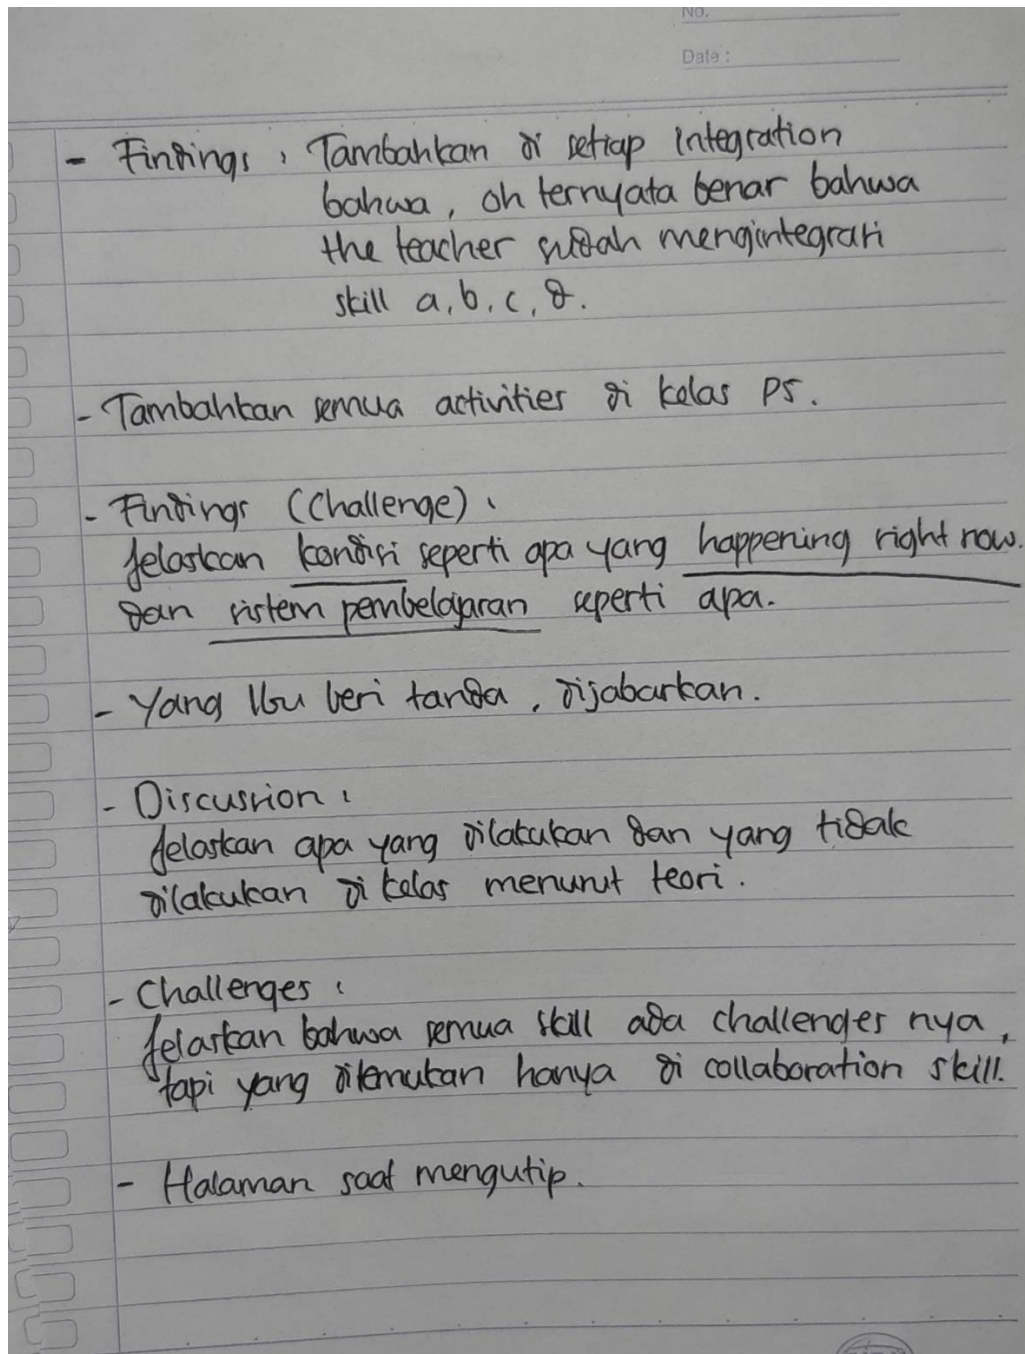 No.
Date :
- Findings : Tambahkan di setiap integration
bahwa, oh ternyata benar bahwa
the teacher sudah mengintegrasi
skill a, b, c, d.
- Tambahkan semua activities di kelas PS.
- Findings (Challenge) :
Jelaskan kondisi seperti apa yang happening right now.
dan sistem pembelajaran seperti apa.
- Yang Ibu beri tanda, dijabarkan.
- Discussion :
Jelaskan apa yang dilakukan dan yang tidak
dilakukan di kelas menurut teori.
- Challenges :
Jelaskan bahwa semua skill ada challenges nya,
tapi yang ditemukan hanya di collaboration skill.
- Halaman saat mengutip.